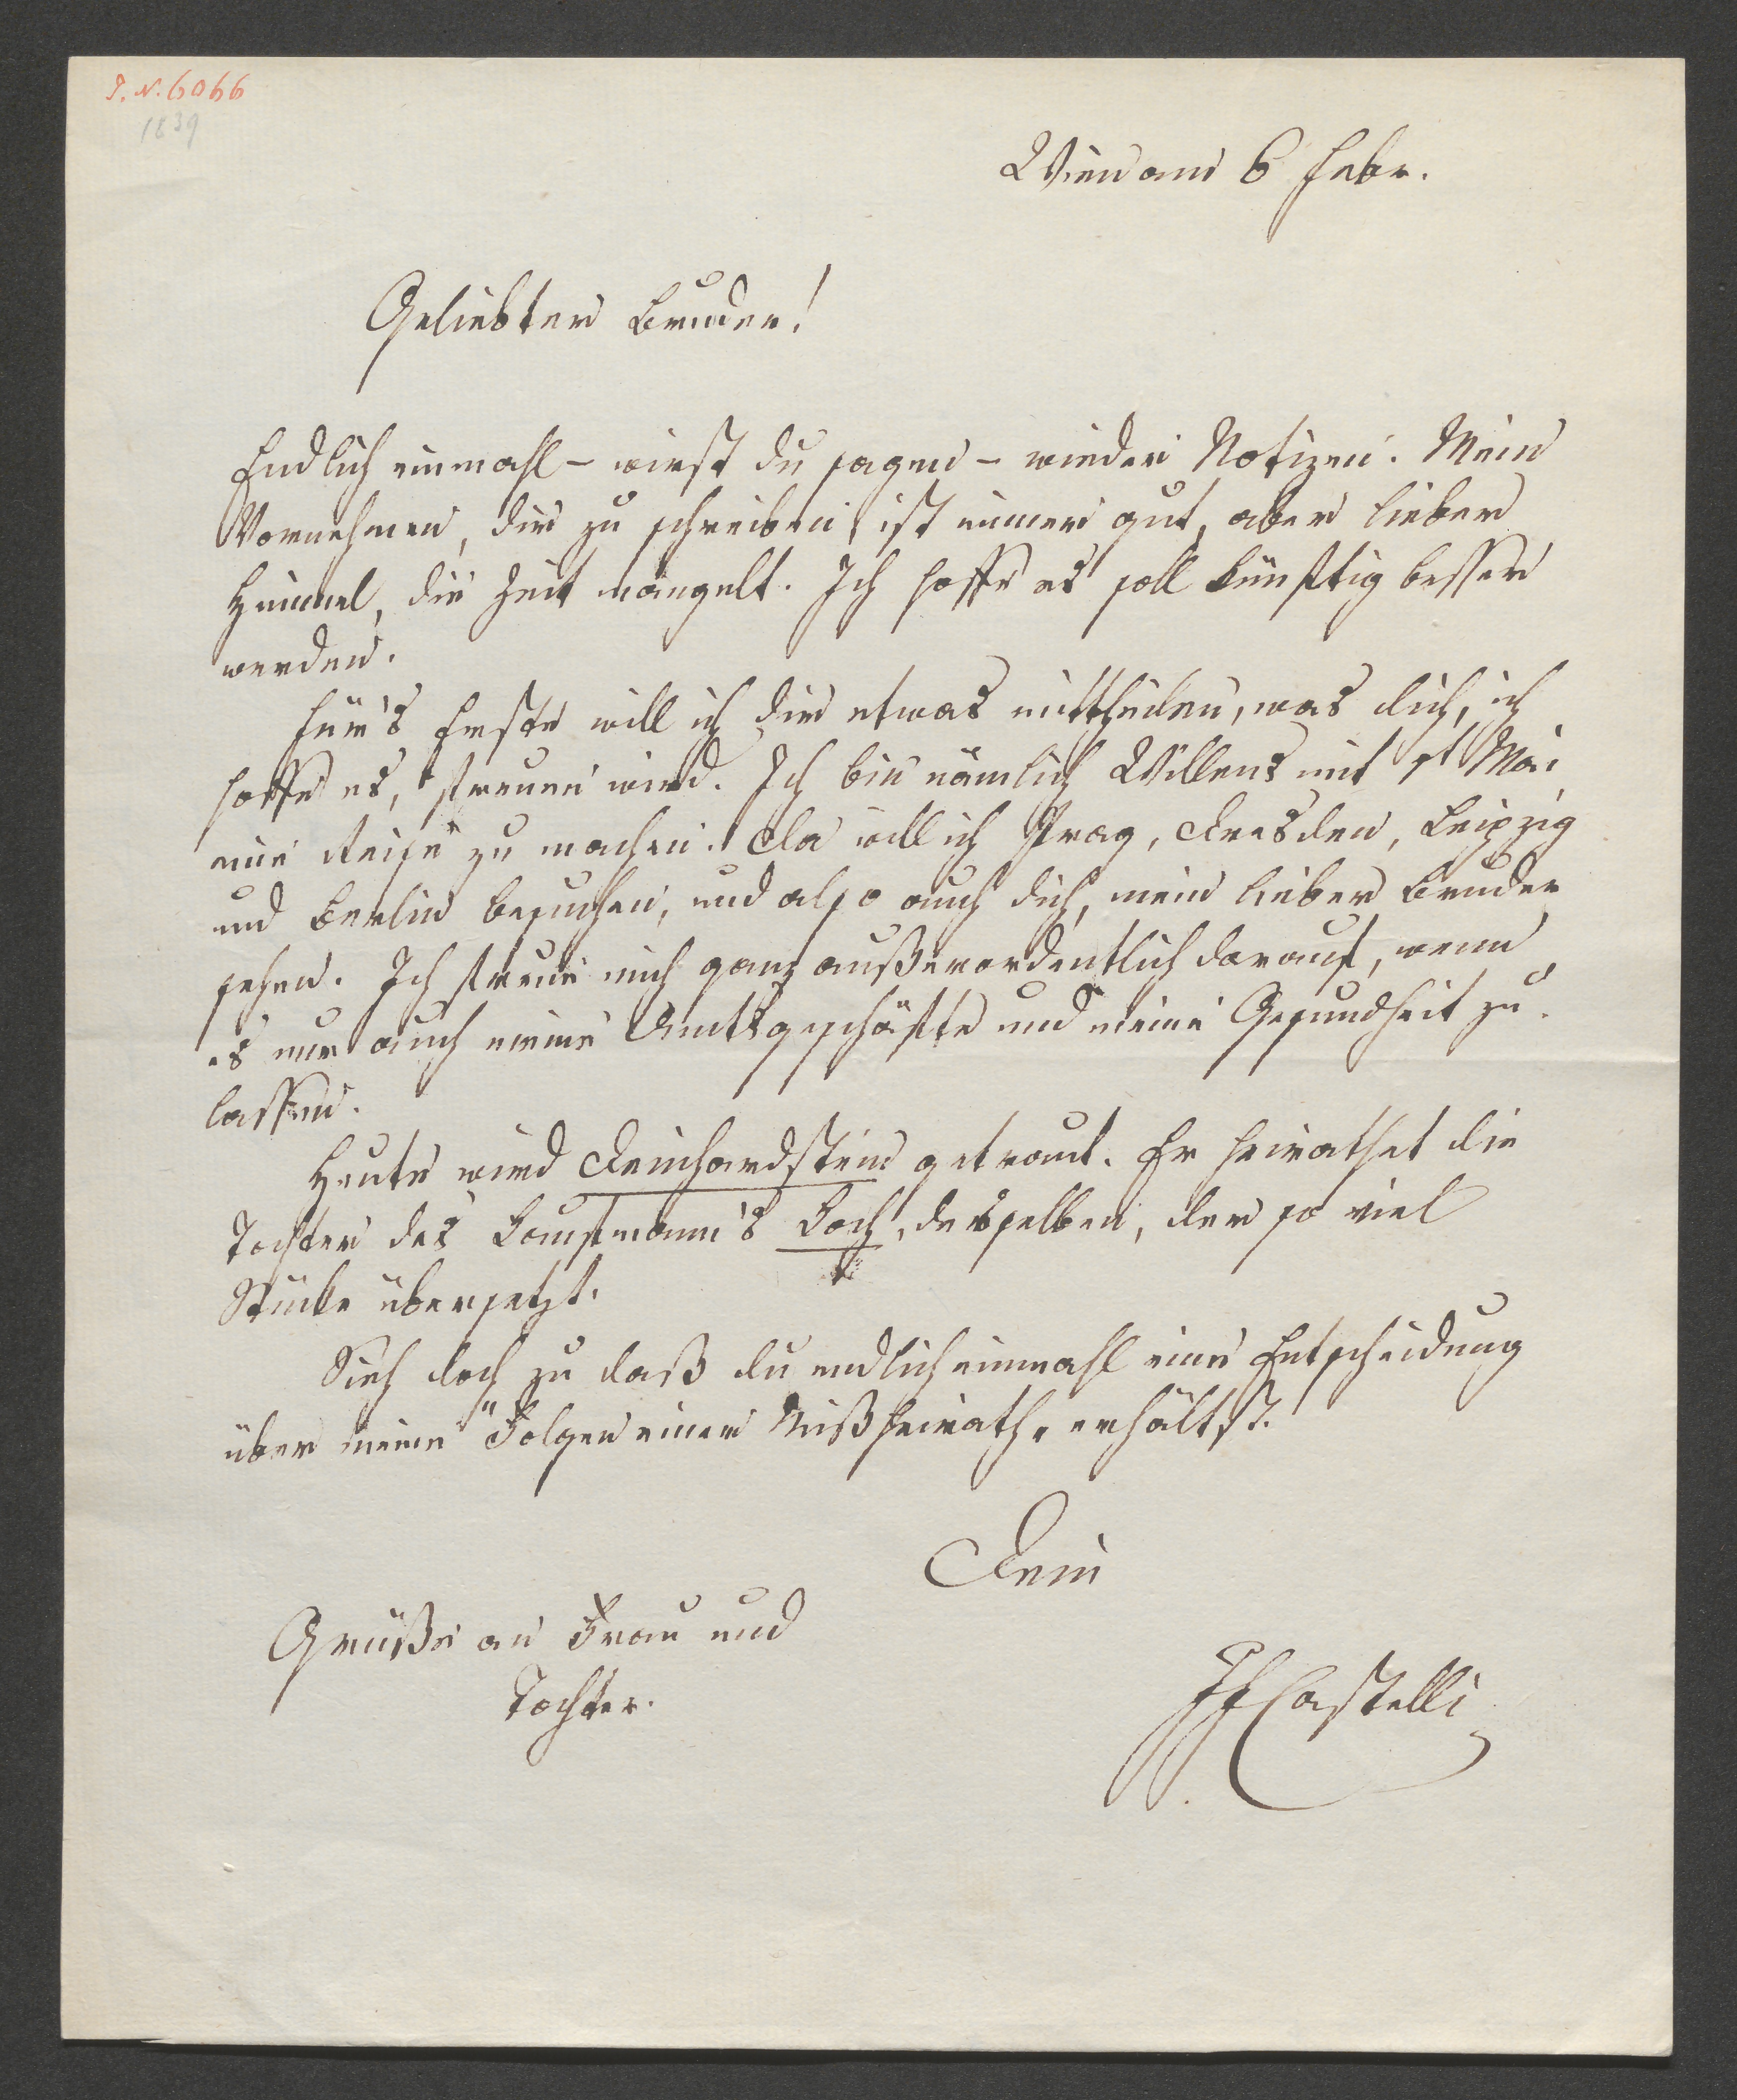 P. N. 6066
1839
Wien am 6 Febr.
Geliebter Bruder!
Endlich einmahl – wirst du sagen – wieder Notizen. Mein
Vornehmen, dir zu schreiben ist immer gut, aber lieber
Himmel, die Zeit mangelt. Ich hoffe es soll künftig besser
werden.
Für's Erste will ich dir etwas mittheilen, was dich, ich
hoffe es, freuen wird. Ich bin nämlich Willens mit 1t Mai
eine Reise zu machen. Da will ich Prag, Dresden, Leipzig
und Berlin besuchen, und also auch dich, mein lieber Bruder
sehen. Ich freue mich ganz außerordentlich darauf, wenn
es nur auch meine Amtsgeschäfte und meine Gesundheit zu-
lassen.
Heute wird Deinhardstein getraut. Er heirathet die
Tochter des Kaufmann's Koch, desselben, der so viel
Stücke übersetzt.
Sieh doch zu daß du endlich einmahl eine Entscheidung
über meine "Folgen einer Mißheirath" erhältst.
Dein
Grüße an Frau und
Tochter.
IF Castelli